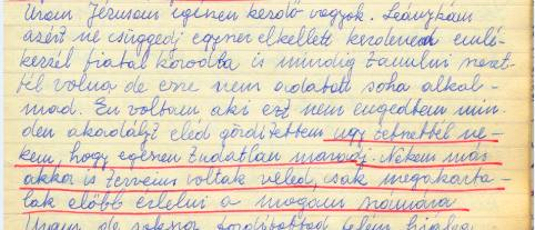 Uram Jézusom egészen kezdő vagyok. Leánykám
azért ne csüggedj egyszer elkellett kezdened emlé-
kezzél fiatal korodba is mindig tanulni szeret-
tél volna de erre nem adatott soha alkal-
mad. Én voltam aki ezt nem engedtem min-
den akadályt eléd gördítettem úgy tetszettél ne-
kem, hogy egészen tudatlan maradj. Nekem már
akkor is terveim voltak véled, csak megakarta-
lak előbb érlelni a magam számára
Uram de sokszor fordítottad felém